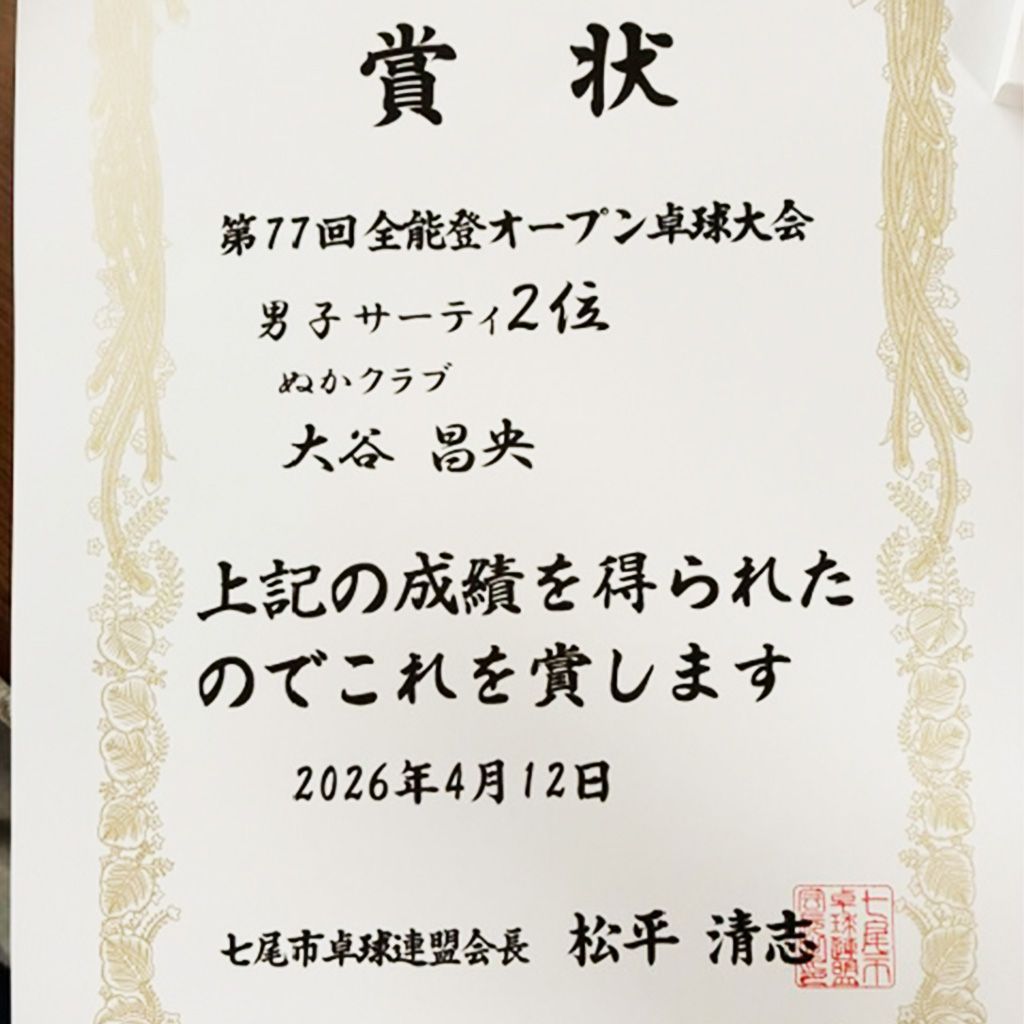 賞状
第77回全能登オープン卓球大会
男子サーティ2位
ぬかクラブ
大谷 昌央
上記の成績を得られた
のでこれを賞します
2026年4月12日
七尾市卓球連盟会長 松平 清志
七尾市
卓球連盟